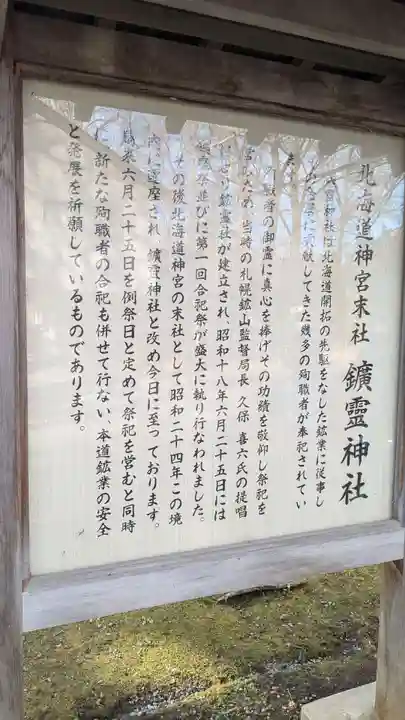 北海道神宮末社 鑛靈神社
神社は北海道開拓の先駆をなした鉱業に従事し
に貢献してきた幾多の殉職者が奉祀されてい
ます。
職者の御霊に真心を捧げその功績を敬仰し祭祀を
ため、当時の札幌鉱山監督局長 久保 喜六氏の提唱
により鉱霊社が建立され、昭和十八年六月二十五日には
祭並びに第一回合祀祭が盛大に執り行なわれました。
その後北海道神宮の末社として昭和二十四年この境
内に遷座され鑛霊神社と改め今日に至っております。
爾来六月二十五日を例祭日と定めて祭祀を営むと同時
に、新たな殉職者の合祀も併せて行ない、本道鉱業の安全
と発展を祈願しているものであります。